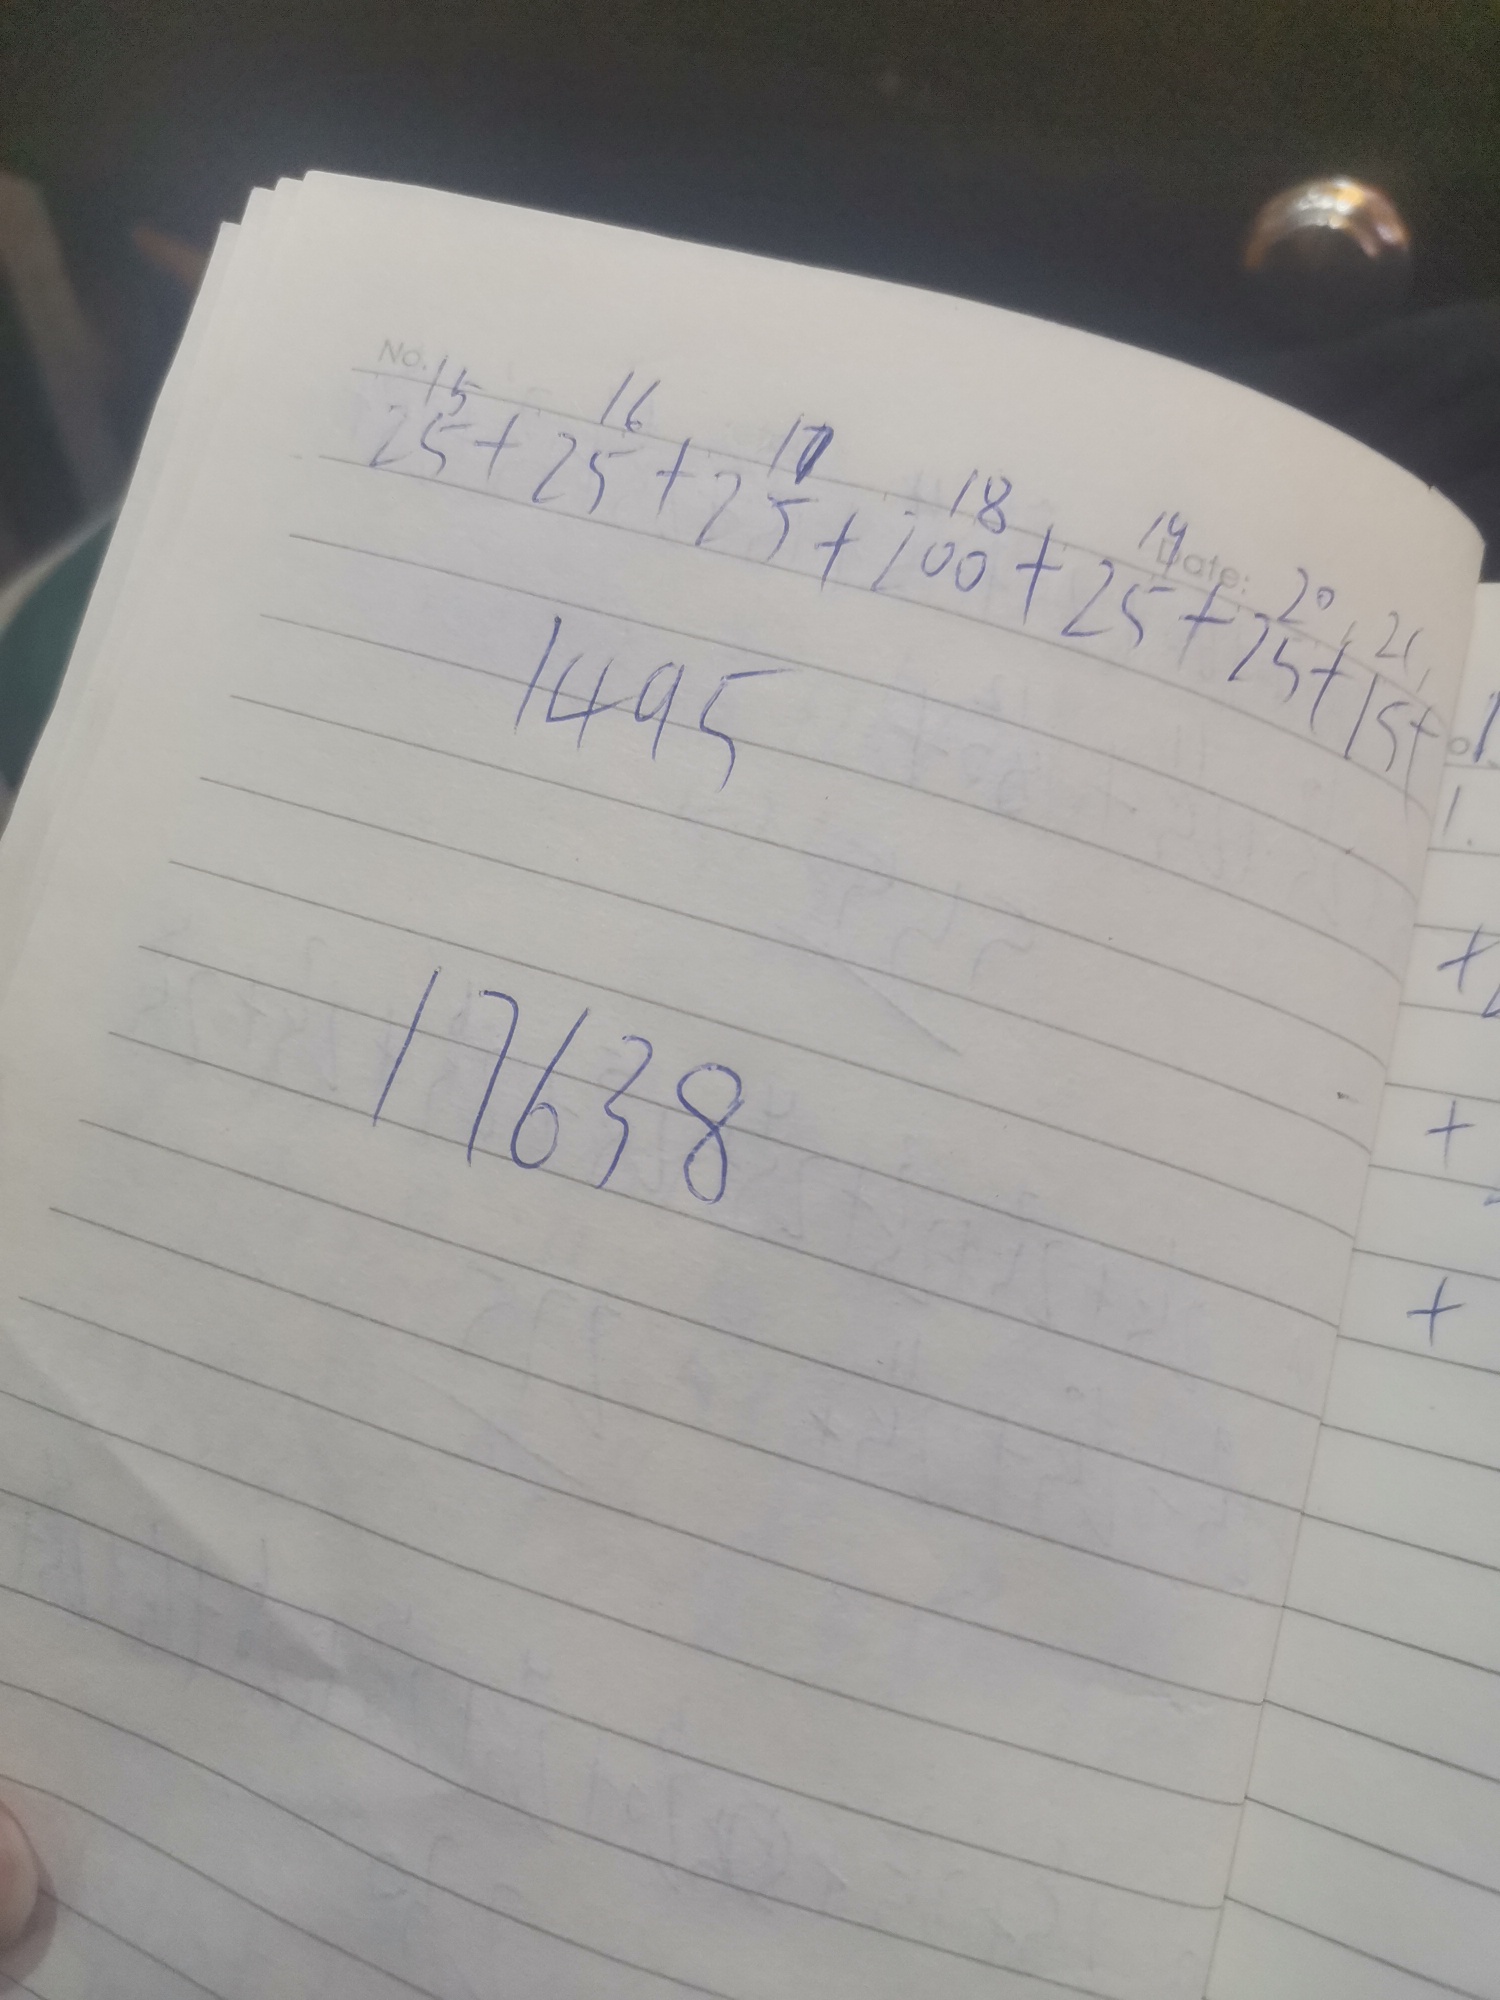 No.
15 16 17 18 19 20 21
Date:
25+ 25 + 25 + 200 + 25 + 25 + 15+
1495
17638
1.
+
+
+